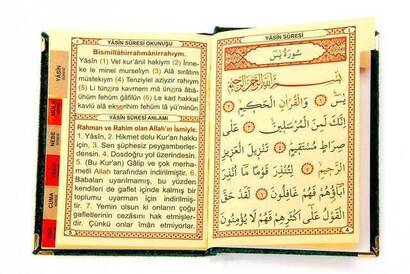 YÂSÎN SÛRESİ OKUNUŞU
Bismillâhirrahmânirrahıym.
Yâsîn (1) Vel kur'ânil hakiym (2) İnne-
ke le minel murseliyn (3) Alâ sırâtım
müstekıym (4) Tenziylel aziyzir rahıym
(5) Li tünzira kavmem mâ ünzira âbâ-
ühüm fehüm ğâfilûn (6) Le kad hakkal
kavlü alâ ekserihim fehüm lâ yü'minûn (7)
YÂSÎN SÛRESİ ANLAMI
Rahman ve Rahim olan Allah'ın İsmiyle.
1. Yâsîn, 2. Hikmet dolu Kur'an hakkı
için, 3. Sen şüphesiz peygamberler-
densin. 4. Dosdoğru yol üzerindesin.
5. (Bu Kur'an) Gâlip ve çok merha-
metli Allah tarafından indirilmiştir. 6.
Babaları uyarılmamış, bu yüzden
kendileri de gaflet içinde kalmış bir
toplumu uyarman için indirilmiş-
tir. 7. Yemin olsun ki onların çoğu
gafletlerinin cezasını hak etmişler-
dir. Çünkü onlar îman etmiyorlar.
YÂSİN
NEBE
CUMA
YÂSÎN SÛRESİ
سُورَةُ يٰسٓ
بِسْمِ اللّٰهِ الرَّحْمٰنِ الرَّحِيمِ
يٰسٓ ﴿١﴾ وَالْقُرْاٰنِ الْحَكِيمِ ﴿٢﴾
اِنَّكَ لَمِنَ الْمُرْسَلِينَ ﴿٣﴾ عَلٰى
صِرَاطٍ مُسْتَقِيمٍ ﴿٤﴾ تَنْزِيلَ الْعَزِيزِ
الرَّحِيمِ ﴿٥﴾ لِتُنْذِرَ قَوْمًا مَٓا اُنْذِرَ
اٰبَٓاؤُهُمْ فَهُمْ غَافِلُونَ ﴿٦﴾ لَقَدْ حَقَّ
الْقَوْلُ عَلٰٓى اَكْثَرِهِمْ فَهُمْ لَا يُؤْمِنُونَ
4